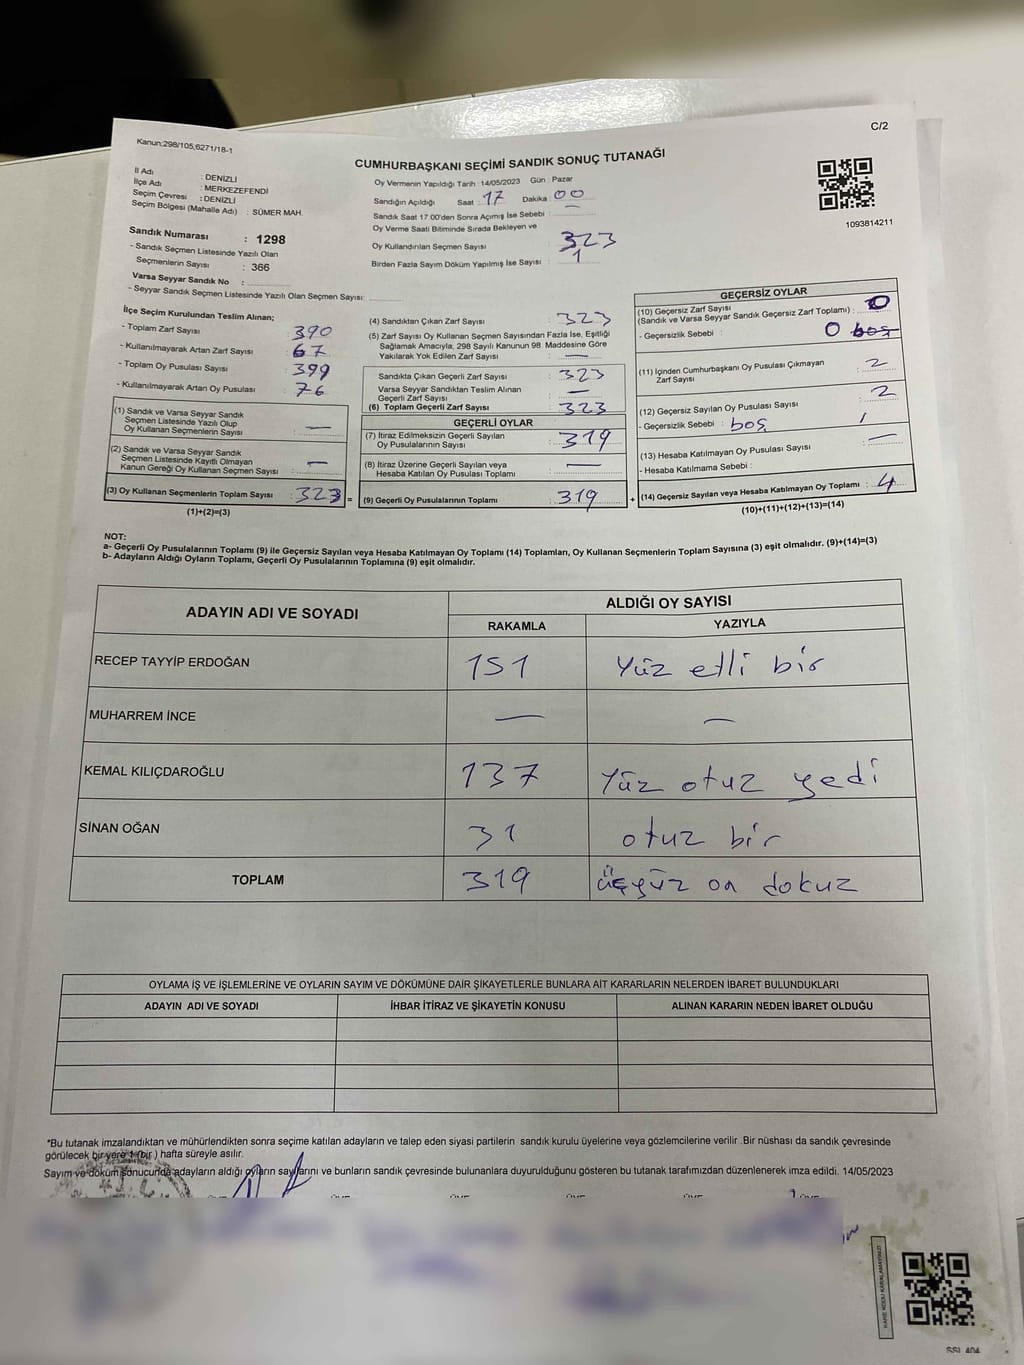 C/2
Kanun:298/105,6271/18-1
CUMHURBAŞKANI SEÇİMİ SANDIK SONUÇ TUTANAĞI
İl Adı : DENİZLİ
İlçe Adı : MERKEZEFENDİ
Seçim Çevresi : DENİZLİ
Seçim Bölgesi (Mahalle Adı) : SÜMER MAH.
Sandık Numarası : 1298
- Sandık Seçmen Listesinde Yazılı Olan
Seçmenlerin Sayısı : 366
Varsa Seyyar Sandık No :
- Seyyar Sandık Seçmen Listesinde Yazılı Olan Seçmen Sayısı:
Oy Vermenin Yapıldığı Tarih :14/05/2023 Gün : Pazar
Sandığın Açıldığı Saat : 17 Dakika : 00
Sandık Saat 17:00'den Sonra Açımış İse Sebebi : —
Oy Verme Saati Bitiminde Sırada Bekleyen ve
Oy Kullandırılan Seçmen Sayısı : 323
Birden Fazla Sayım Döküm Yapılmış İse Sayısı : 1
1093814211
İlçe Seçim Kurulundan Teslim Alınan;
- Toplam Zarf Sayısı : 390
- Kullanılmayarak Artan Zarf Sayısı : 67
- Toplam Oy Pusulası Sayısı : 399
- Kullanılmayarak Artan Oy Pusulası : 76
(1) Sandık ve Varsa Seyyar Sandık
Seçmen Listesinde Yazılı Olup
Oy Kullanan Seçmenlerin Sayısı : —
(2) Sandık ve Varsa Seyyar Sandık
Seçmen Listesinde Kayıtlı Olmayan
Kanun Gereği Oy Kullanan Seçmen Sayısı : —
(3) Oy Kullanan Seçmenlerin Toplam Sayısı : 323 =
(1)+(2)=(3)
(4) Sandıktan Çıkan Zarf Sayısı : 323
(5) Zarf Sayısı Oy Kullanan Seçmen Sayısından Fazla İse, Eşitliği
Sağlamak Amacıyla, 298 Sayılı Kanunun 98. Maddesine Göre
Yakılarak Yok Edilen Zarf Sayısı : —
Sandıkta Çıkan Geçerli Zarf Sayısı : 323
Varsa Seyyar Sandıktan Teslim Alınan
Geçerli Zarf Sayısı : —
(6) Toplam Geçerli Zarf Sayısı : 323
GEÇERLİ OYLAR
(7) İtiraz Edilmeksizin Geçerli Sayılan
Oy Pusulalarının Sayısı : 319
(8) İtiraz Üzerine Geçerli Sayılan veya
Hesaba Katılan Oy Pusulası Toplamı : —
(9) Geçerli Oy Pusulalarının Toplamı : 319 +
GEÇERSİZ OYLAR
(10) Geçersiz Zarf Sayısı
(Sandık ve Varsa Seyyar Sandık Geçersiz Zarf Toplamı) : 0
- Geçersizlik Sebebi : 0 boş
(11) İçinden Cumhurbaşkanı Oy Pusulası Çıkmayan
Zarf Sayısı : 2
(12) Geçersiz Sayılan Oy Pusulası Sayısı : 2
- Geçersizlik Sebebi : boş /
(13) Hesaba Katılmayan Oy Pusulası Sayısı : —
- Hesaba Katılmama Sebebi :
(14) Geçersiz Sayılan veya Hesaba Katılmayan Oy Toplamı : 4
(10)+(11)+(12)+(13)=(14)
NOT:
a- Geçerli Oy Pusulalarının Toplamı (9) ile Geçersiz Sayılan veya Hesaba Katılmayan Oy Toplamı (14) Toplamları, Oy Kullanan Seçmenlerin Toplam Sayısına (3) eşit olmalıdır. (9)+(14)=(3)
b- Adayların Aldığı Oyların Toplamı, Geçerli Oy Pusulalarının Toplamına (9) eşit olmalıdır.
ADAYIN ADI VE SOYADI ALDIĞI OY SAYISI
RAKAMLA YAZIYLA
RECEP TAYYİP ERDOĞAN 151 Yüz elli bir
MUHARREM İNCE — —
KEMAL KILIÇDAROĞLU 137 Yüz otuz yedi
SİNAN OĞAN 31 otuz bir
TOPLAM 319 üçyüz on dokuz
OYLAMA İŞ VE İŞLEMLERİNE VE OYLARIN SAYIM VE DÖKÜMÜNE DAİR ŞİKAYETLERLE BUNLARA AİT KARARLARIN NELERDEN İBARET BULUNDUKLARI
ADAYIN ADI VE SOYADI İHBAR İTİRAZ VE ŞİKAYETİN KONUSU ALINAN KARARIN NEDEN İBARET OLDUĞU
*Bu tutanak imzalandıktan ve mühürlendikten sonra seçime katılan adayların ve talep eden siyasi partilerin sandık kurulu üyelerine veya gözlemcilerine verilir .Bir nüshası da sandık çevresinde
görülecek bir yere 1 (bir ) hafta süreyle asılır.
Sayım ve döküm sonucunda adayların aldığı oyların sayılarını ve bunların sandık çevresinde bulunanlara duyurulduğunu gösteren bu tutanak tarafımızdan düzenlenerek imza edildi. 14/05/2023